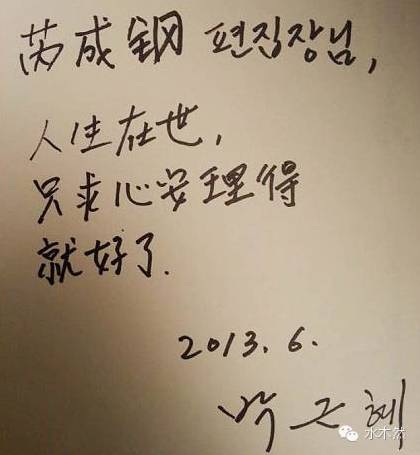 芮成钢 편집장님,
人生在世,
只求心安理得
就好了.
2013.6.
박근혜
水木然